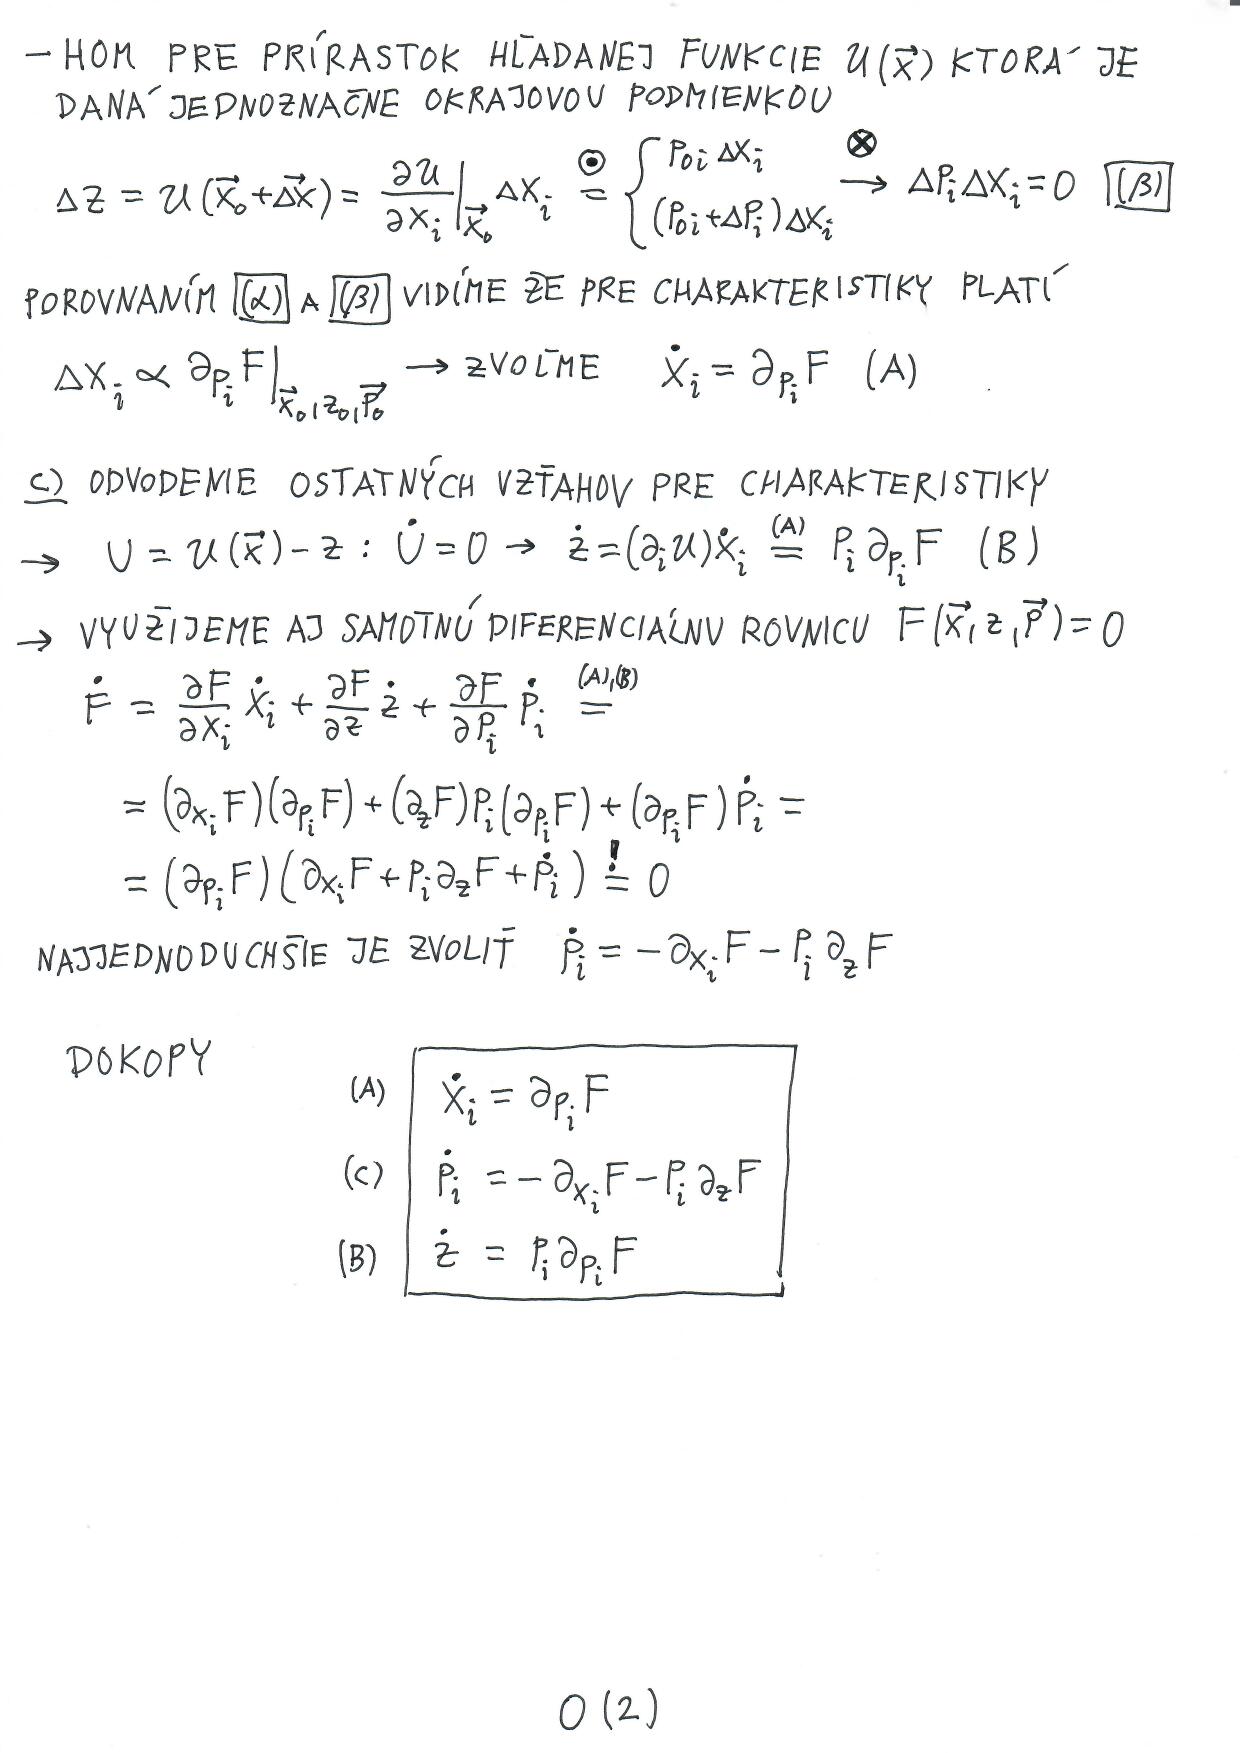 - HOM PRE PRÍRASTOK HĽADANEJ FUNKCIE U(x⃗) KTORÁ JE
DANÁ JEDNOZNAČNE OKRAJOVOU PODMIENKOU
ΔZ = U(x⃗₀+Δx⃗) = ∂U/∂xᵢ|x⃗₀ Δxᵢ ⊙= { p₀ᵢ Δxᵢ ; (p₀ᵢ+Δpᵢ)Δxᵢ ⊗→ ΔpᵢΔxᵢ=0 (β)
POROVNANÍM (α) A (β) VIDÍME ŽE PRE CHARAKTERISTIKY PLATÍ
Δxᵢ ∝ ∂pᵢF|x⃗₀,z₀,p⃗₀ → ZVOĽME ẋᵢ = ∂pᵢF (A)
c) ODVODENIE OSTATNÝCH VZŤAHOV PRE CHARAKTERISTIKY
→ U = U(x⃗) - z : U̇ = 0 → ż = (∂ᵢU)ẋᵢ (A)= pᵢ∂pᵢF (B)
→ VYUŽIJEME AJ SAMOTNÚ DIFERENCIÁLNU ROVNICU F(x⃗,z,p⃗)=0
Ḟ = ∂F/∂xᵢ ẋᵢ + ∂F/∂z ż + ∂F/∂pᵢ ṗᵢ (A),(B)=
= (∂xᵢF)(∂pᵢF) + (∂zF)pᵢ(∂pᵢF) + (∂pᵢF)ṗᵢ =
= (∂pᵢF)(∂xᵢF + pᵢ∂zF + ṗᵢ) != 0
NAJJEDNODUCHŠIE JE ZVOLIŤ ṗᵢ = -∂xᵢF - pᵢ∂zF
DOKOPY
(A) ẋᵢ = ∂pᵢF
(C) ṗᵢ = -∂xᵢF - pᵢ∂zF
(B) ż = pᵢ∂pᵢF
O(2)